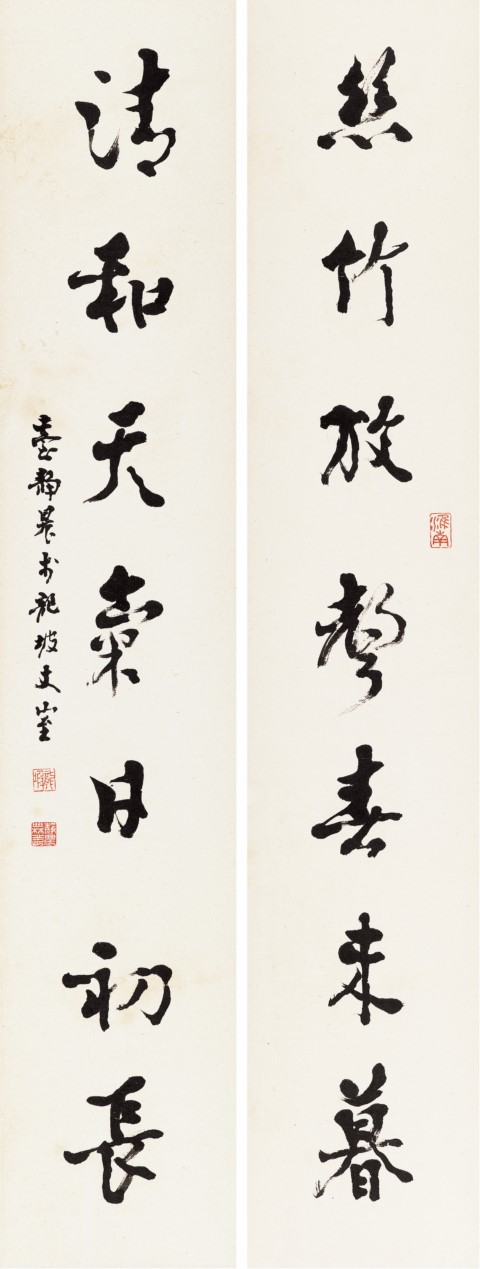 絲竹放聲春未暮
淮南
清和天稟日初長
臺靜農於龍坡丈室